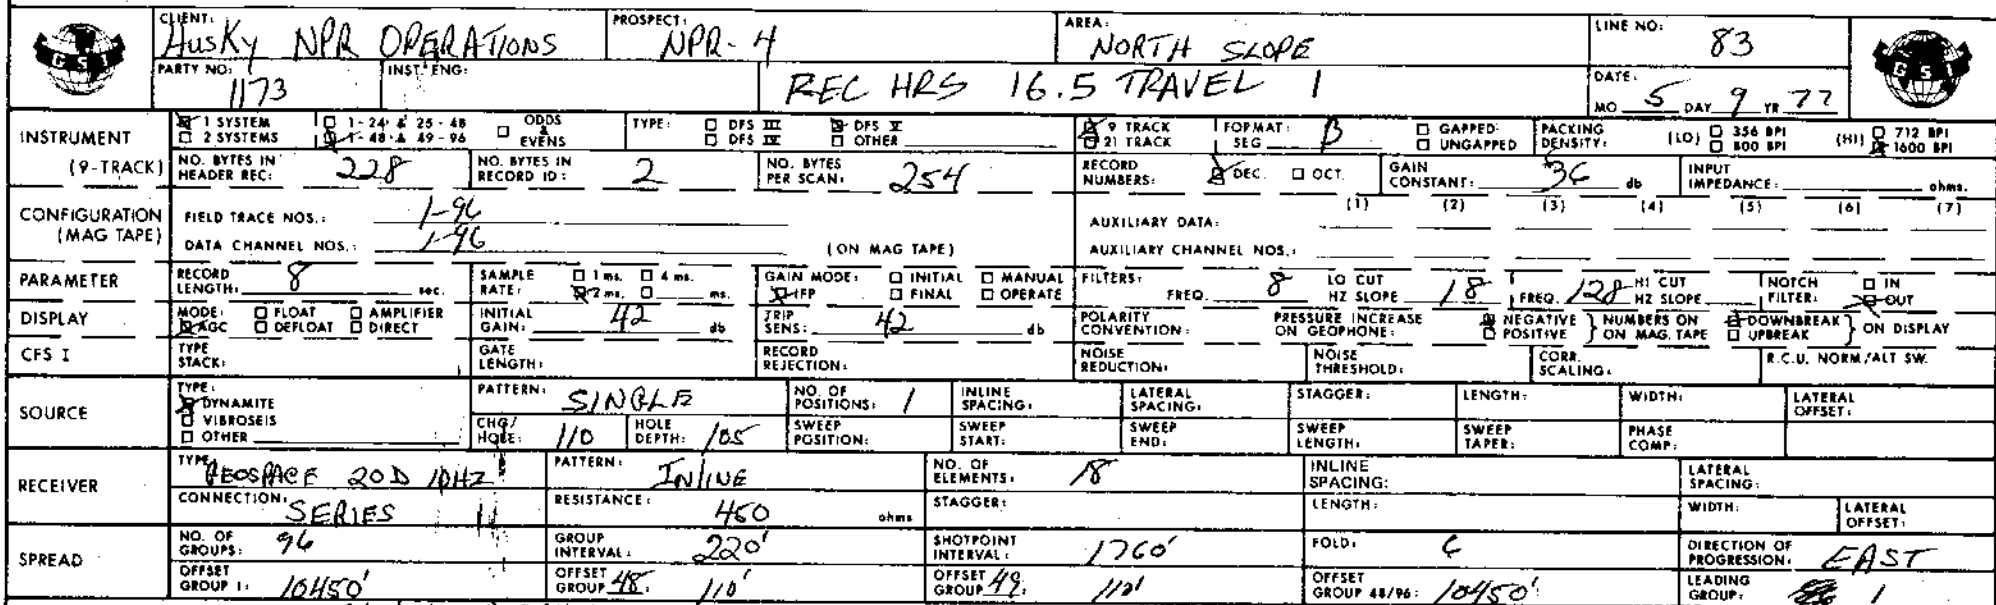 CLIENT: HusKy NPR OPERATIONS PROSPECT: NPR-4 AREA: NORTH SLOPE LINE NO: 83
GSI GSI
PARTY NO: 1173 INST. ENG: REC HRS 16.5 TRAVEL 1 DATE: MO 5 DAY 9 YR 77
INSTRUMENT 1 SYSTEM 1-24 & 25-48 ODDS & EVENS TYPE: DFS III DFS V 9 TRACK FORMAT: SEG B GAPPED PACKING DENSITY: (LO) 356 BPI (HI) 712 BPI
2 SYSTEMS 1-48 & 49-96 DFS IV OTHER 21 TRACK UNGAPPED 800 BPI 1600 BPI
(9-TRACK) NO. BYTES IN HEADER REC: 228 NO. BYTES IN RECORD ID: 2 NO. BYTES PER SCAN: 254 RECORD NUMBERS: DEC. OCT. GAIN CONSTANT: 36 db INPUT IMPEDANCE: ohms.
CONFIGURATION (MAG TAPE) FIELD TRACE NOS.: 1-96 AUXILIARY DATA: (1) (2) (3) (4) (5) (6) (7)
DATA CHANNEL NOS.: 1-96 (ON MAG TAPE) AUXILIARY CHANNEL NOS.:
PARAMETER RECORD LENGTH: 8 sec. SAMPLE RATE: 1 ms. 4 ms. 2 ms. ms. GAIN MODE: INITIAL MANUAL IFP FINAL OPERATE FILTERS: FREQ. 8 LO CUT HZ SLOPE 18 FREQ. 128 HI CUT HZ SLOPE NOTCH FILTER: IN OUT
DISPLAY MODE: FLOAT AMPLIFIER AGC DEFLOAT DIRECT INITIAL GAIN: 42 db TRIP SENS: 42 db POLARITY CONVENTION: PRESSURE INCREASE ON GEOPHONE: NEGATIVE POSITIVE NUMBERS ON ON MAG. TAPE DOWNBREAK UPBREAK ON DISPLAY
CFS I TYPE STACK: GATE LENGTH: RECORD REJECTION: NOISE REDUCTION: NOISE THRESHOLD: CORR. SCALING: R.C.U. NORM/ALT SW.
SOURCE TYPE: DYNAMITE VIBROSEIS OTHER PATTERN: SINGLE NO. OF POSITIONS: 1 INLINE SPACING: LATERAL SPACING: STAGGER: LENGTH: WIDTH: LATERAL OFFSET:
CHG/HOLE: 110 HOLE DEPTH: 105 SWEEP POSITION: SWEEP START: SWEEP END: SWEEP LENGTH: SWEEP TAPER: PHASE COMP:
RECEIVER TYPE: GEOSPACE 20D 10HZ PATTERN: INLINE NO. OF ELEMENTS: 18 INLINE SPACING: LATERAL SPACING:
CONNECTION: SERIES RESISTANCE: 450 ohms STAGGER: LENGTH: WIDTH: LATERAL OFFSET:
SPREAD NO. OF GROUPS: 96 GROUP INTERVAL: 220' SHOTPOINT INTERVAL: 1760' FOLD: 6 DIRECTION OF PROGRESSION: EAST
OFFSET GROUP 1: 10450' OFFSET GROUP 48: 110' OFFSET GROUP 49: 110' OFFSET GROUP 48/96: 10450' LEADING GROUP: 1